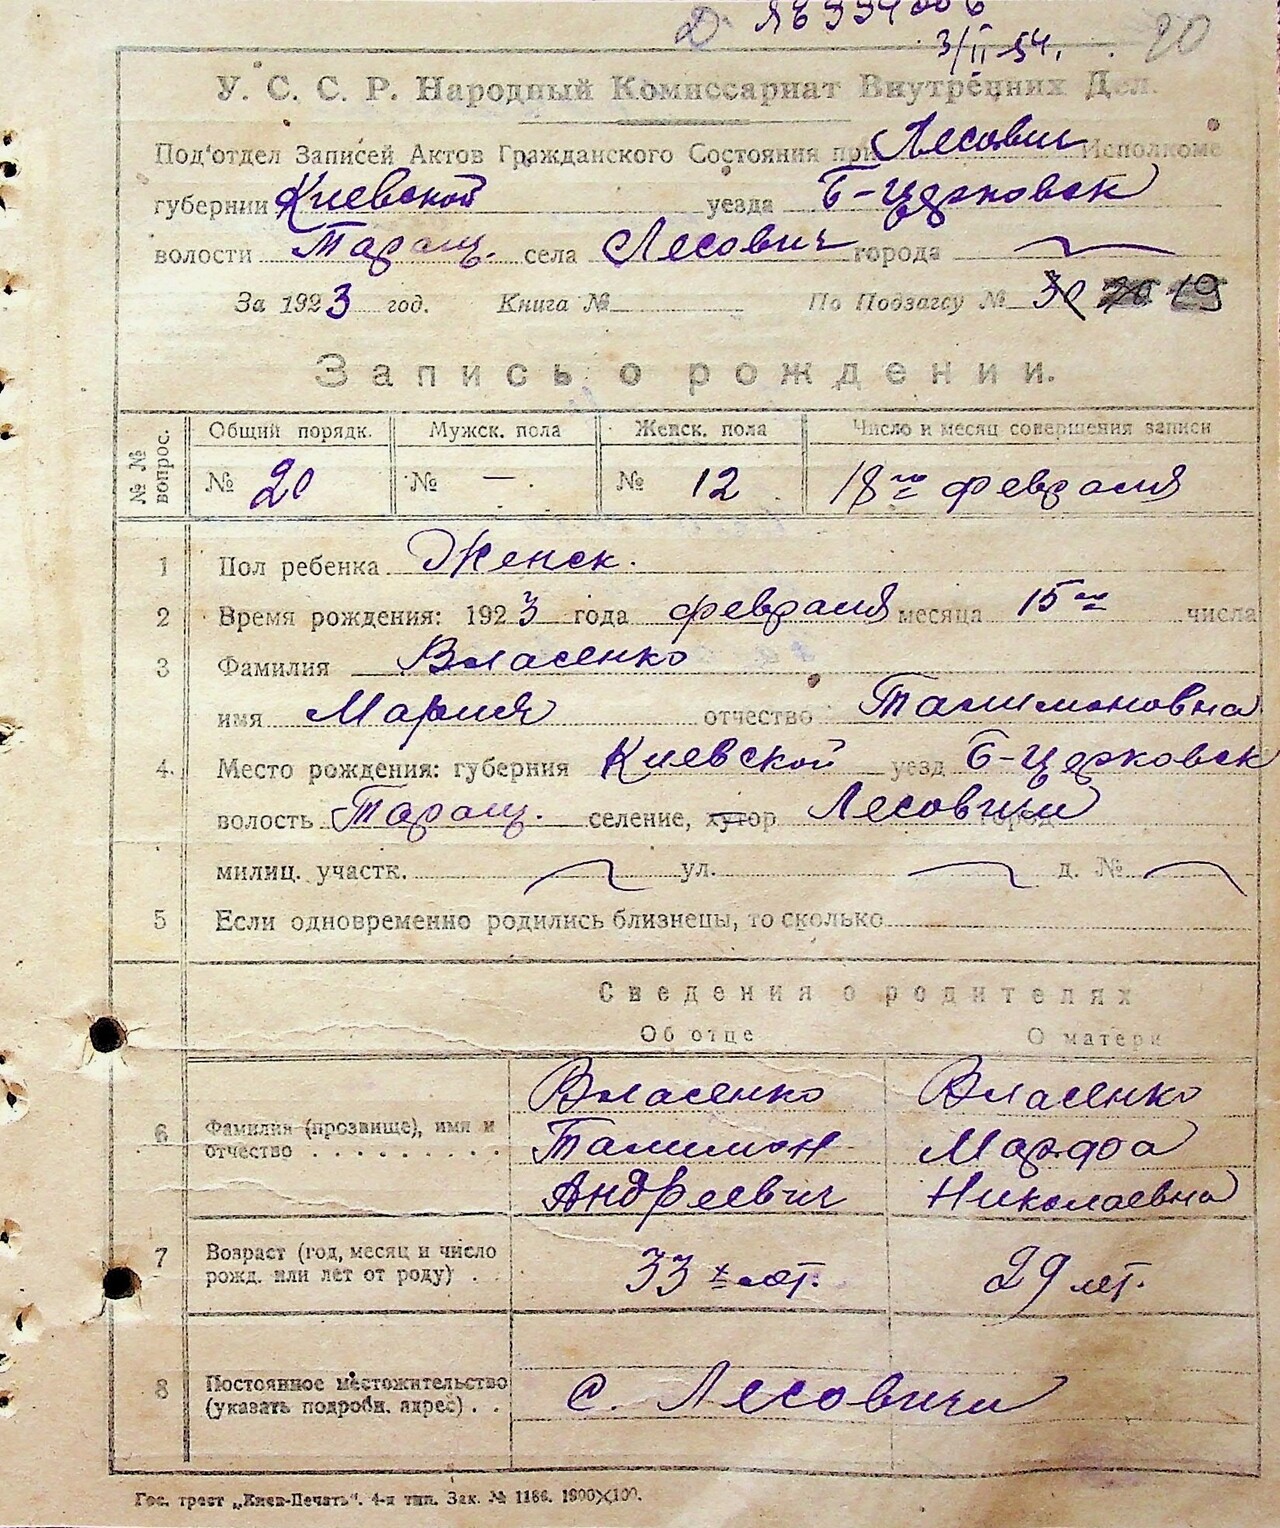 Д. ЯБ
3/II 54. 20
У. С. С. Р. Народный Комиссариат Внутренних Дел.
Под'отдел Записей Актов Гражданского Состояния при Лесович Исполкоме
губернии Киевской уезда Б-Церковск
волости Таращ. села Лесович города
За 1923 год. Книга № По Подзагсу № 30 20 19
Запись о рождении.
№ № вопрос. Общий порядк. Мужск. пола Женск. пола Число и месяц совершения записи
№ 20 № — . № 12 18го февраля
1 Пол ребенка Женск.
2 Время рождения: 1923 года февраля месяца 15го числа
3 Фамилия Власенко
имя Мария отчество Талимоновна
4. Место рождения: губерния Киевской уезд Б-Церковск
волость Таращ. селение, хутор Лесовичи город
милиц. участк. ул. д. №
5 Если одновременно родились близнецы, то сколько
Сведения о родителях
Об отце О матери
Власенко Власенко
6 Фамилия (прозвище), имя и
отчество . . . . . . . . . Талимон Марфа
Андреевич Николаевна
7 Возраст (год, месяц и число
рожд. или лет от роду) . . 33 х лет. 29 лет.
8 Постоянное местожительство
(указать подробн. адрес) . . с. Лесовичи
Гос. трест „Киев-Печать". 4-я тип. Зак. № 1186. 1800×100.